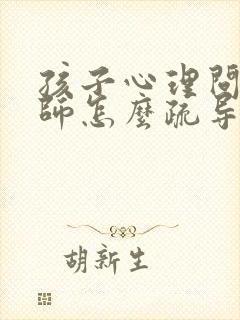 孩子心理問
師怎麼疏导
胡新生